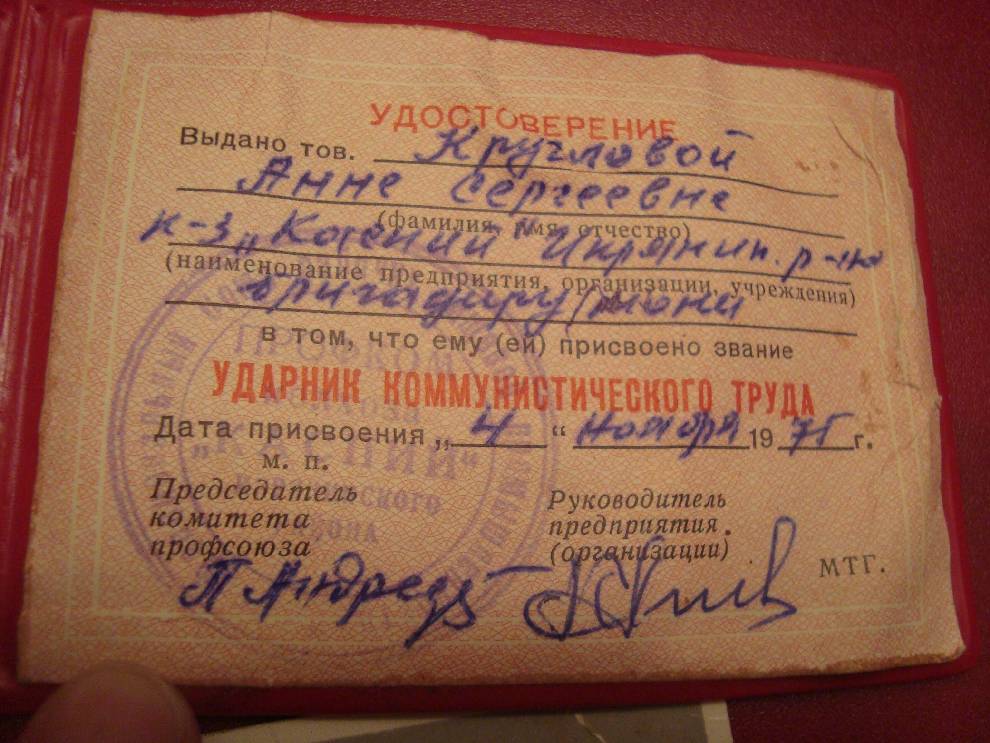 УДОСТОВЕРЕНИЕ
Выдано тов. Кругловой
Анне Сергеевне
(фамилия, имя, отчество)
к-з „Каспий" Икрянин. р-на
(наименование предприятия, организации, учреждения)
бригадиру
в том, что ему (ей) присвоено звание
УДАРНИК КОММУНИСТИЧЕСКОГО ТРУДА
Дата присвоения „ 4 " ноября 1975 г.
м. п.
Председатель комитета профсоюза
Руководитель предприятия (организации)
МТГ.
ПРОФКОМ
„КАСПИЙ"